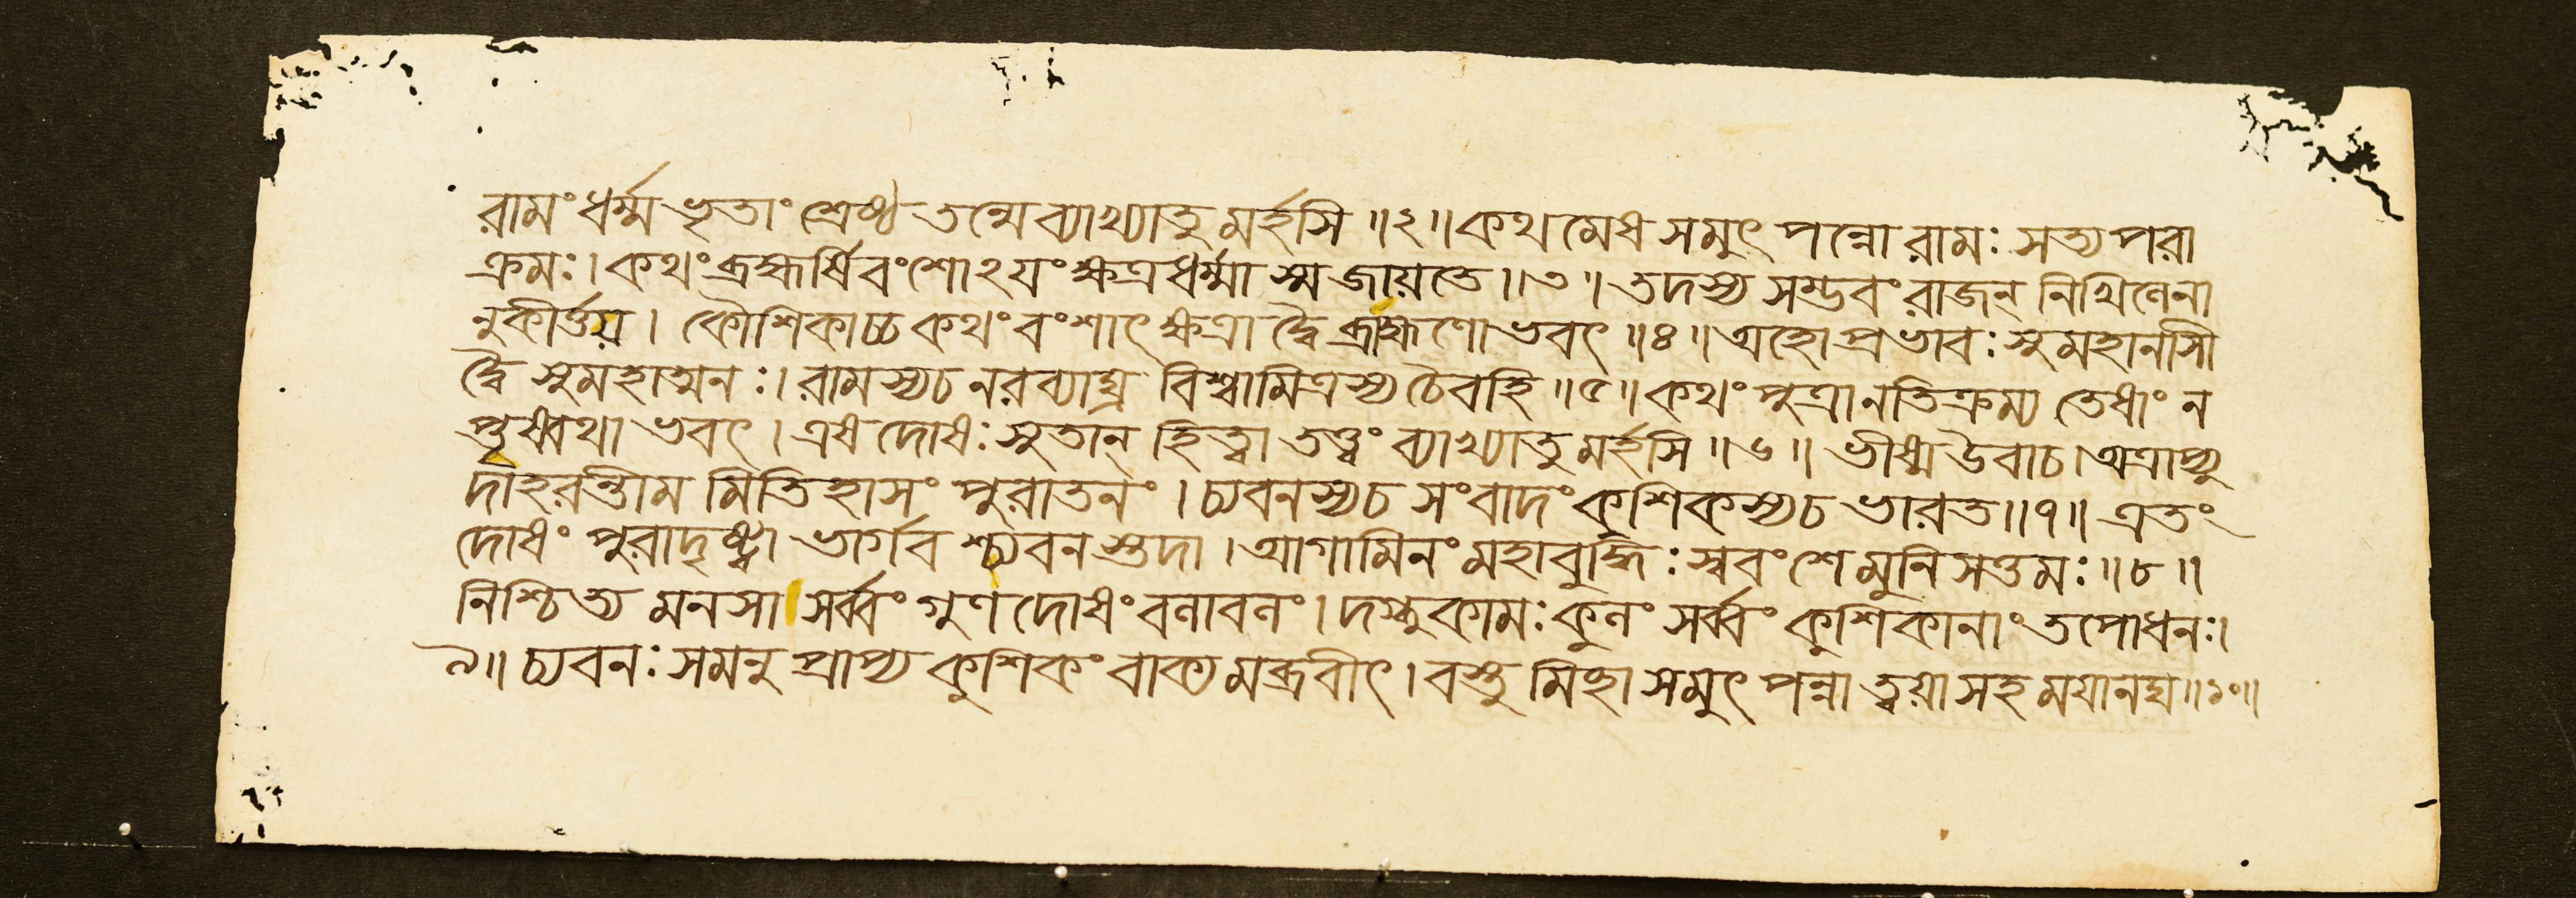 রামং ধর্ম্মভৃতাং শ্রেষ্ঠ তন্মে ব্যাখ্যাতু মর্হসি ॥২॥ কথ মেষ সমুৎ পন্নো রামঃ সত্য পরা
ক্রমঃ। কথং ব্রহ্মর্ষি বংশোঽযং ক্ষত্রধর্ম্মা স্মজায়তে॥৩॥ তদস্য সম্ভবং রাজন্ নিখিলেনা
নুকীর্ত্তয়। কৌশিকাচ্চ কথং বংশাৎ ক্ষত্রা দ্বৈ ব্রাহ্মণো ভবৎ ॥৪॥ অহো প্রভাবঃ সুমহানসী
দ্বৈ সুমহাত্মনঃ। রামস্যচ নরব্যাঘ্র বিশ্বামিত্রস্য চৈবহি ॥৫॥ কথং পুত্রানতিক্রম্য তেষাং ন
প্তৃষ্বথা ভবৎ। এষ দোষঃ সুতান্ হিত্বা তত্ত্বং ব্যাখ্যাতু মর্হসি ॥৬॥ ভীষ্ম উবাচ। অত্রাপ্যু
দাহরন্তীম মিতিহাসং পুরাতনং। চ্যবনস্যচ সংবাদং কুশিকস্যচ ভারত॥৭॥ এতং
দোষং পুরাদৃষ্ট্বা ভার্গব শ্চ্যবনস্তদা। আগামিনং মহাবুদ্ধিঃ স্ববংশে মুনিসত্তমঃ॥৮॥
নিশ্চিত্য মনসা সর্ব্বং গুণ দোষং বলাবলং। দগ্ধুকামঃ কুলং সর্ব্বং কুশিকানাং তপোধনঃ।
৯॥ চ্যবনঃ সমনু প্রাপ্য কুশিকং বাক্য মব্রবীৎ। বস্তু মিচ্ছা সমুৎ পন্না ত্বয়া সহ মযানঘ॥১০॥